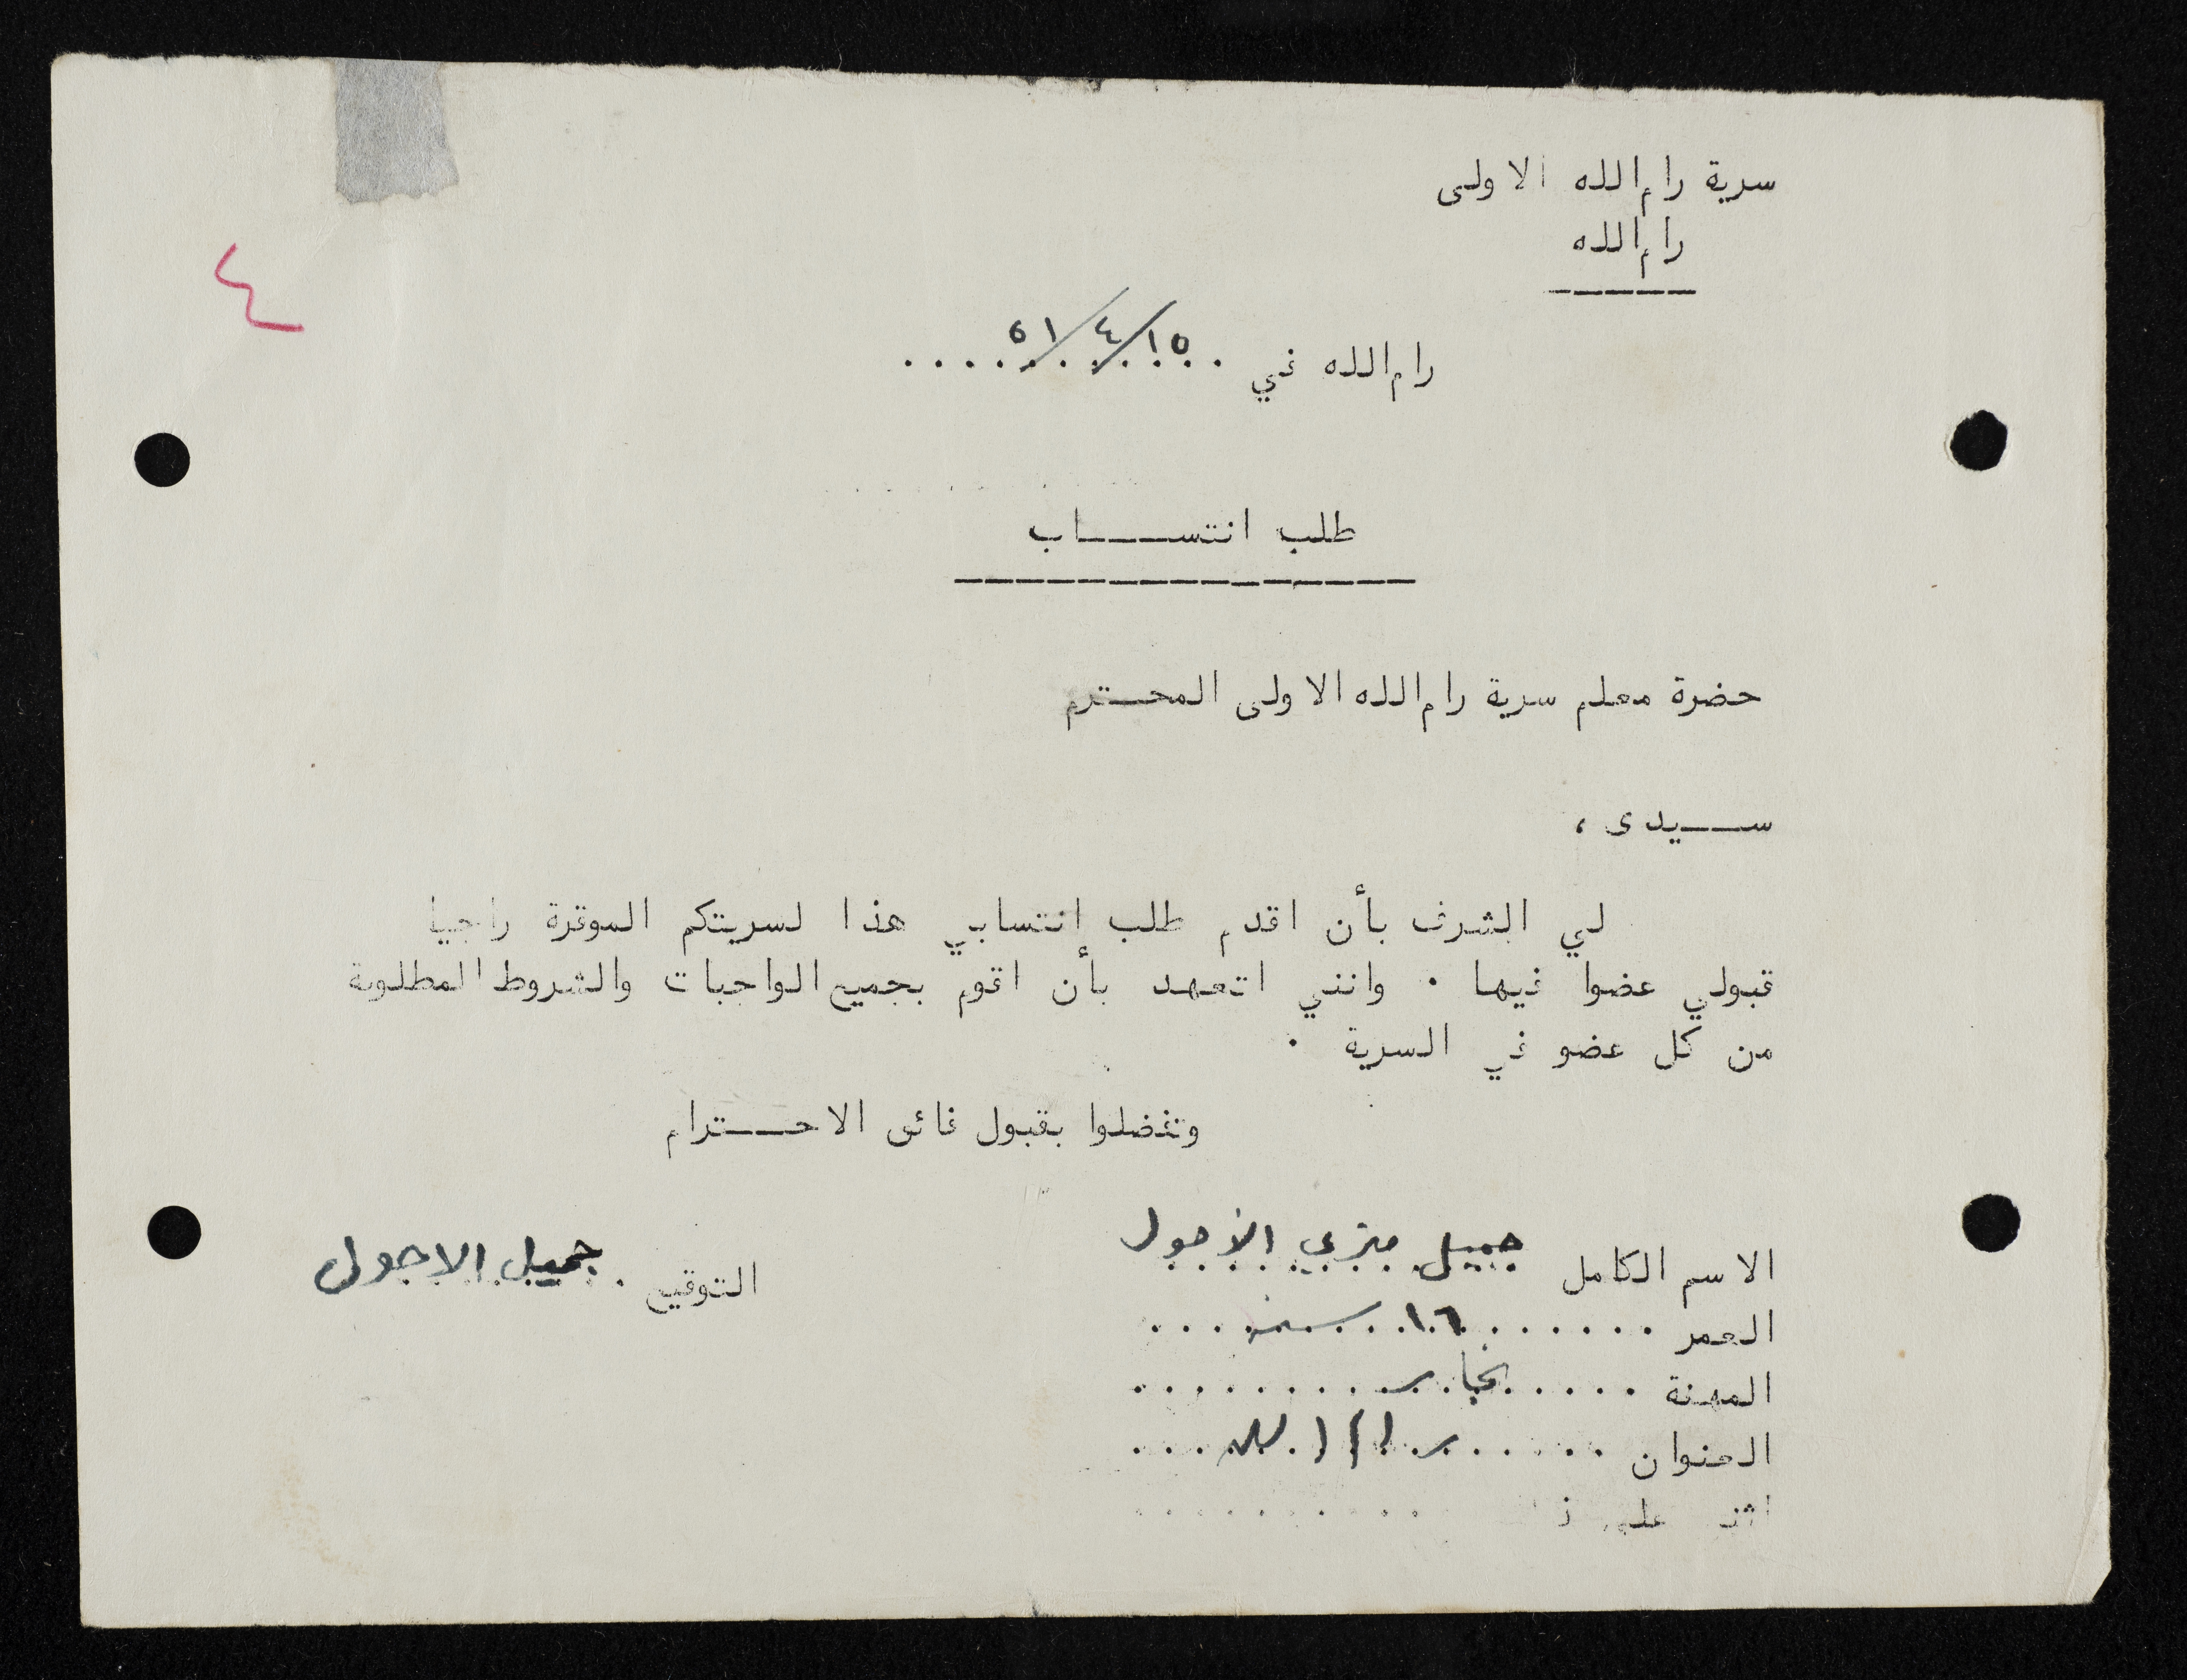 سرية رام الله الاولى
رام الله
٤
رام الله في ١٥/٤/٥١
طلب انتســـاب
حضرة معلم سرية رام الله الاولى المحـترم
ســيدى ،
لي الشرف بأن اقدم طلب إنتسابي هذا لسريتكم الموقرة راجيا
قبولي عضوا فيها . وانني اتعهد بأن اقوم بجميع الواجبات والشروط المطلوبة
من كل عضو في السرية .
وتفضلوا بقبول فائق الاحــترام
الاسم الكامل جميل متري الأحول
التوقيع . جميل الاحول
العمر ١٦ سنه
المهنة نجار
العنوان رام الله